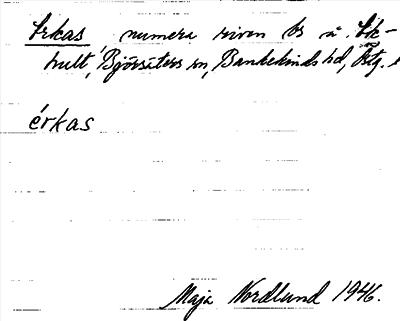 Erkas numera riven bs å. Ek-
hult, Björsäters sn, Bankekinds hd, Östg.
érkas
Maja Nordlund 1946.